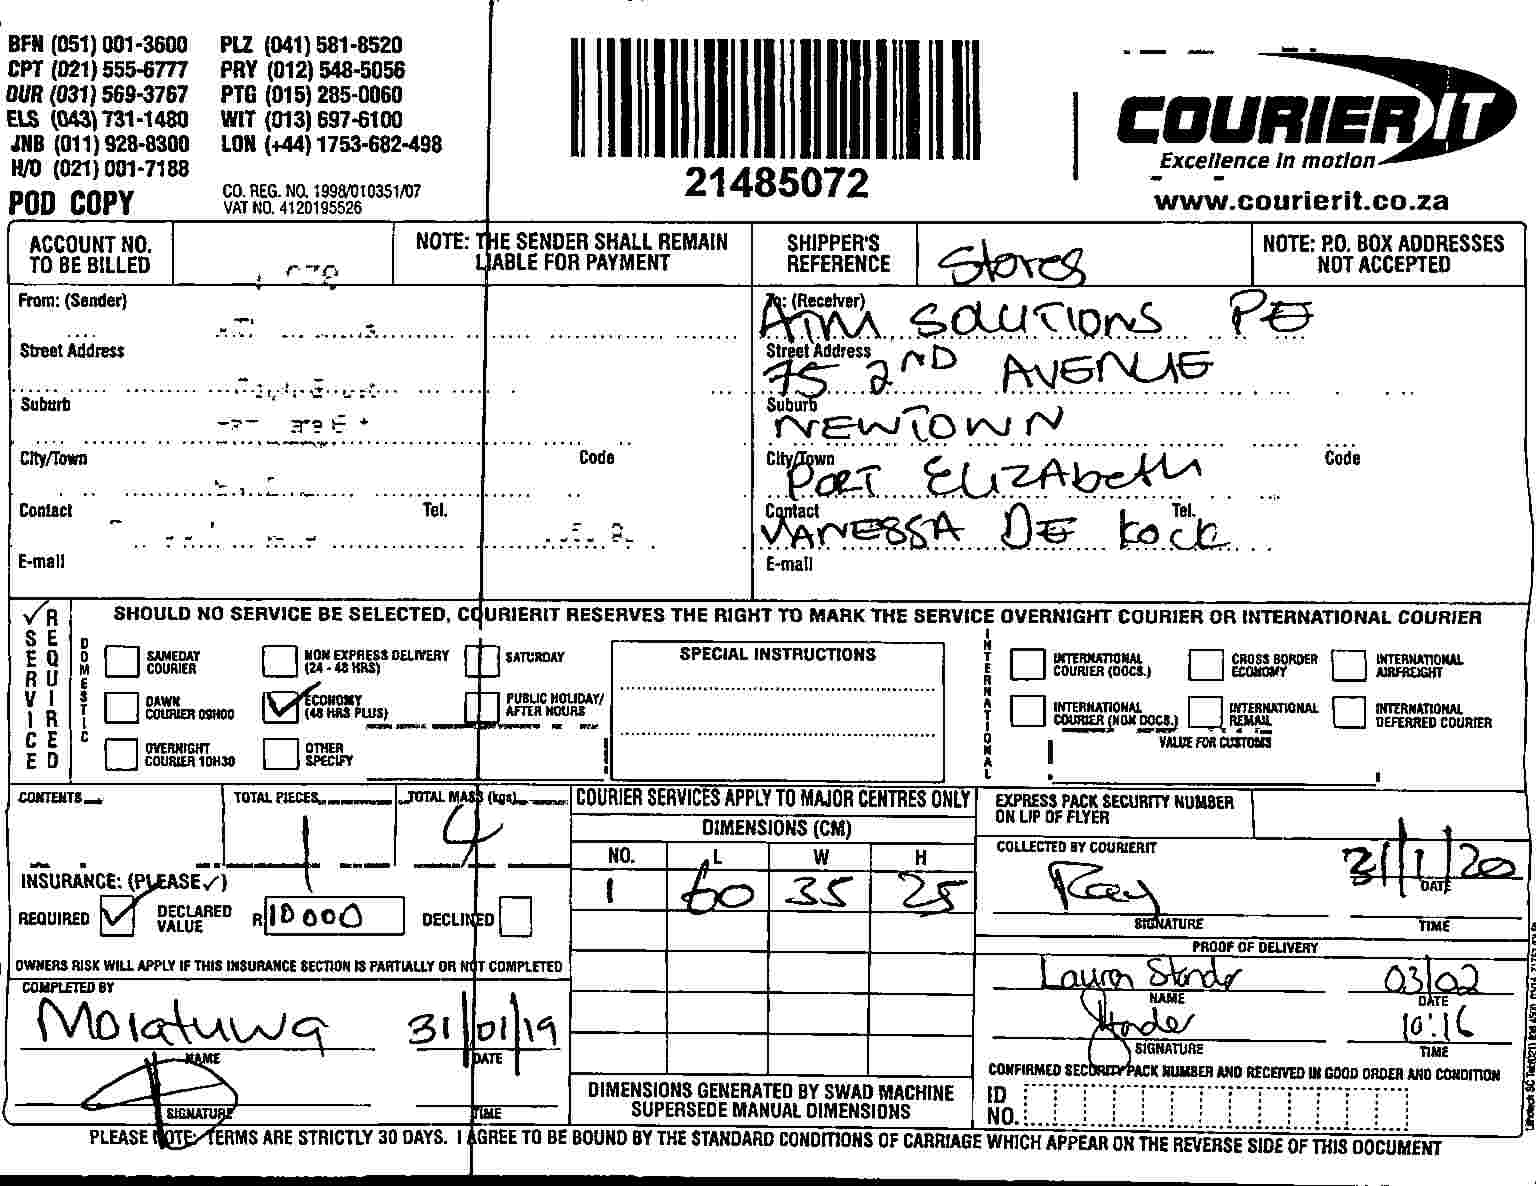 BFN (051) 001-3600 PLZ (041) 581-8520
CPT (021) 555-6777 PRY (012) 548-5056
DUR (031) 569-3767 PTG (015) 285-0060
ELS (043) 731-1480 WIT (013) 697-6100
JNB (011) 928-8300 LON (+44) 1753-682-498
H/O (021) 001-7188
POD COPY
CO. REG. NO. 1998/010351/07
VAT NO. 4120195526
21485072
COURIER IT
Excellence in motion
www.courierit.co.za
ACCOUNT NO. TO BE BILLED
NOTE: THE SENDER SHALL REMAIN LIABLE FOR PAYMENT
SHIPPER'S REFERENCE Stores
NOTE: P.O. BOX ADDRESSES NOT ACCEPTED
From: (Sender)
Street Address
Suburb
City/Town Code
Contact Tel.
E-mail
To: (Receiver) ATM SOLUTIONS PE
Street Address 75 2ND AVENUE
Suburb NEWTOWN
City/Town PORT ELIZAbeth Code
Contact VANESSA DE kock Tel.
E-mail
SERVICE REQUIRED
SHOULD NO SERVICE BE SELECTED, COURIERIT RESERVES THE RIGHT TO MARK THE SERVICE OVERNIGHT COURIER OR INTERNATIONAL COURIER
DOMESTIC
SAMEDAY COURIER
NON EXPRESS DELIVERY (24 - 48 HRS)
SATURDAY
DAWN COURIER 09H00
ECONOMY (48 HRS PLUS)
PUBLIC HOLIDAY/ AFTER HOURS
OVERNIGHT COURIER 10H30
OTHER SPECIFY
SPECIAL INSTRUCTIONS
INTERNATIONAL
INTERNATIONAL COURIER (DOCS.)
CROSS BORDER ECONOMY
INTERNATIONAL AIRFREIGHT
INTERNATIONAL COURIER (NON DOCS.)
INTERNATIONAL REMAIL
INTERNATIONAL DEFERRED COURIER
VALUE FOR CUSTOMS
CONTENTS
TOTAL PIECES 1
TOTAL MASS (kgs) 4
INSURANCE: (PLEASE ✓)
REQUIRED DECLARED VALUE R 10000 DECLINED
OWNERS RISK WILL APPLY IF THIS INSURANCE SECTION IS PARTIALLY OR NOT COMPLETED
COMPLETED BY
Molatuwa 31/01/19
NAME DATE
SIGNATURE TIME
COURIER SERVICES APPLY TO MAJOR CENTRES ONLY
DIMENSIONS (CM)
NO. L W H
1 60 35 25
DIMENSIONS GENERATED BY SWAD MACHINE
SUPERSEDE MANUAL DIMENSIONS
EXPRESS PACK SECURITY NUMBER ON LIP OF FLYER
COLLECTED BY COURIERIT
Ray 31/1/20
DATE
SIGNATURE TIME
PROOF OF DELIVERY
Lauren Stander 03/02
NAME DATE
Stander 10:16
SIGNATURE TIME
CONFIRMED SECURITY PACK NUMBER AND RECEIVED IN GOOD ORDER AND CONDITION
ID NO.
PLEASE NOTE: TERMS ARE STRICTLY 30 DAYS. I AGREE TO BE BOUND BY THE STANDARD CONDITIONS OF CARRIAGE WHICH APPEAR ON THE REVERSE SIDE OF THIS DOCUMENT